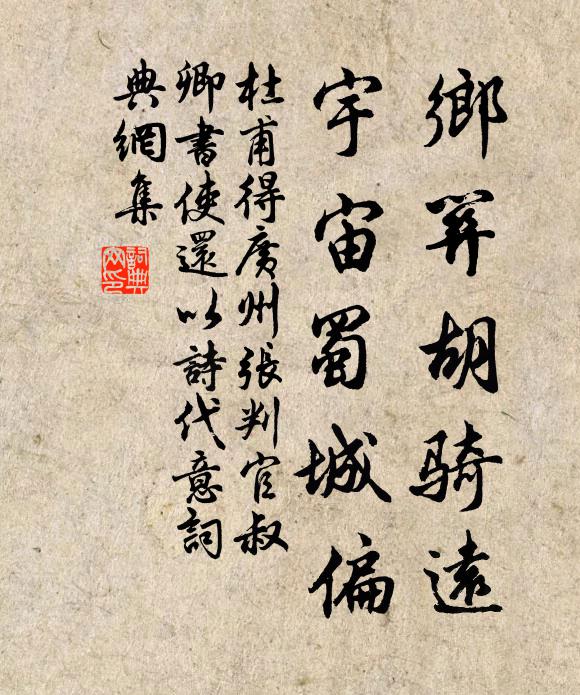 鄉關胡騎遠
宇宙蜀城偏
杜甫得廣州張判官叔
卿書使還以詩代意詞
典網集
詞典
网印